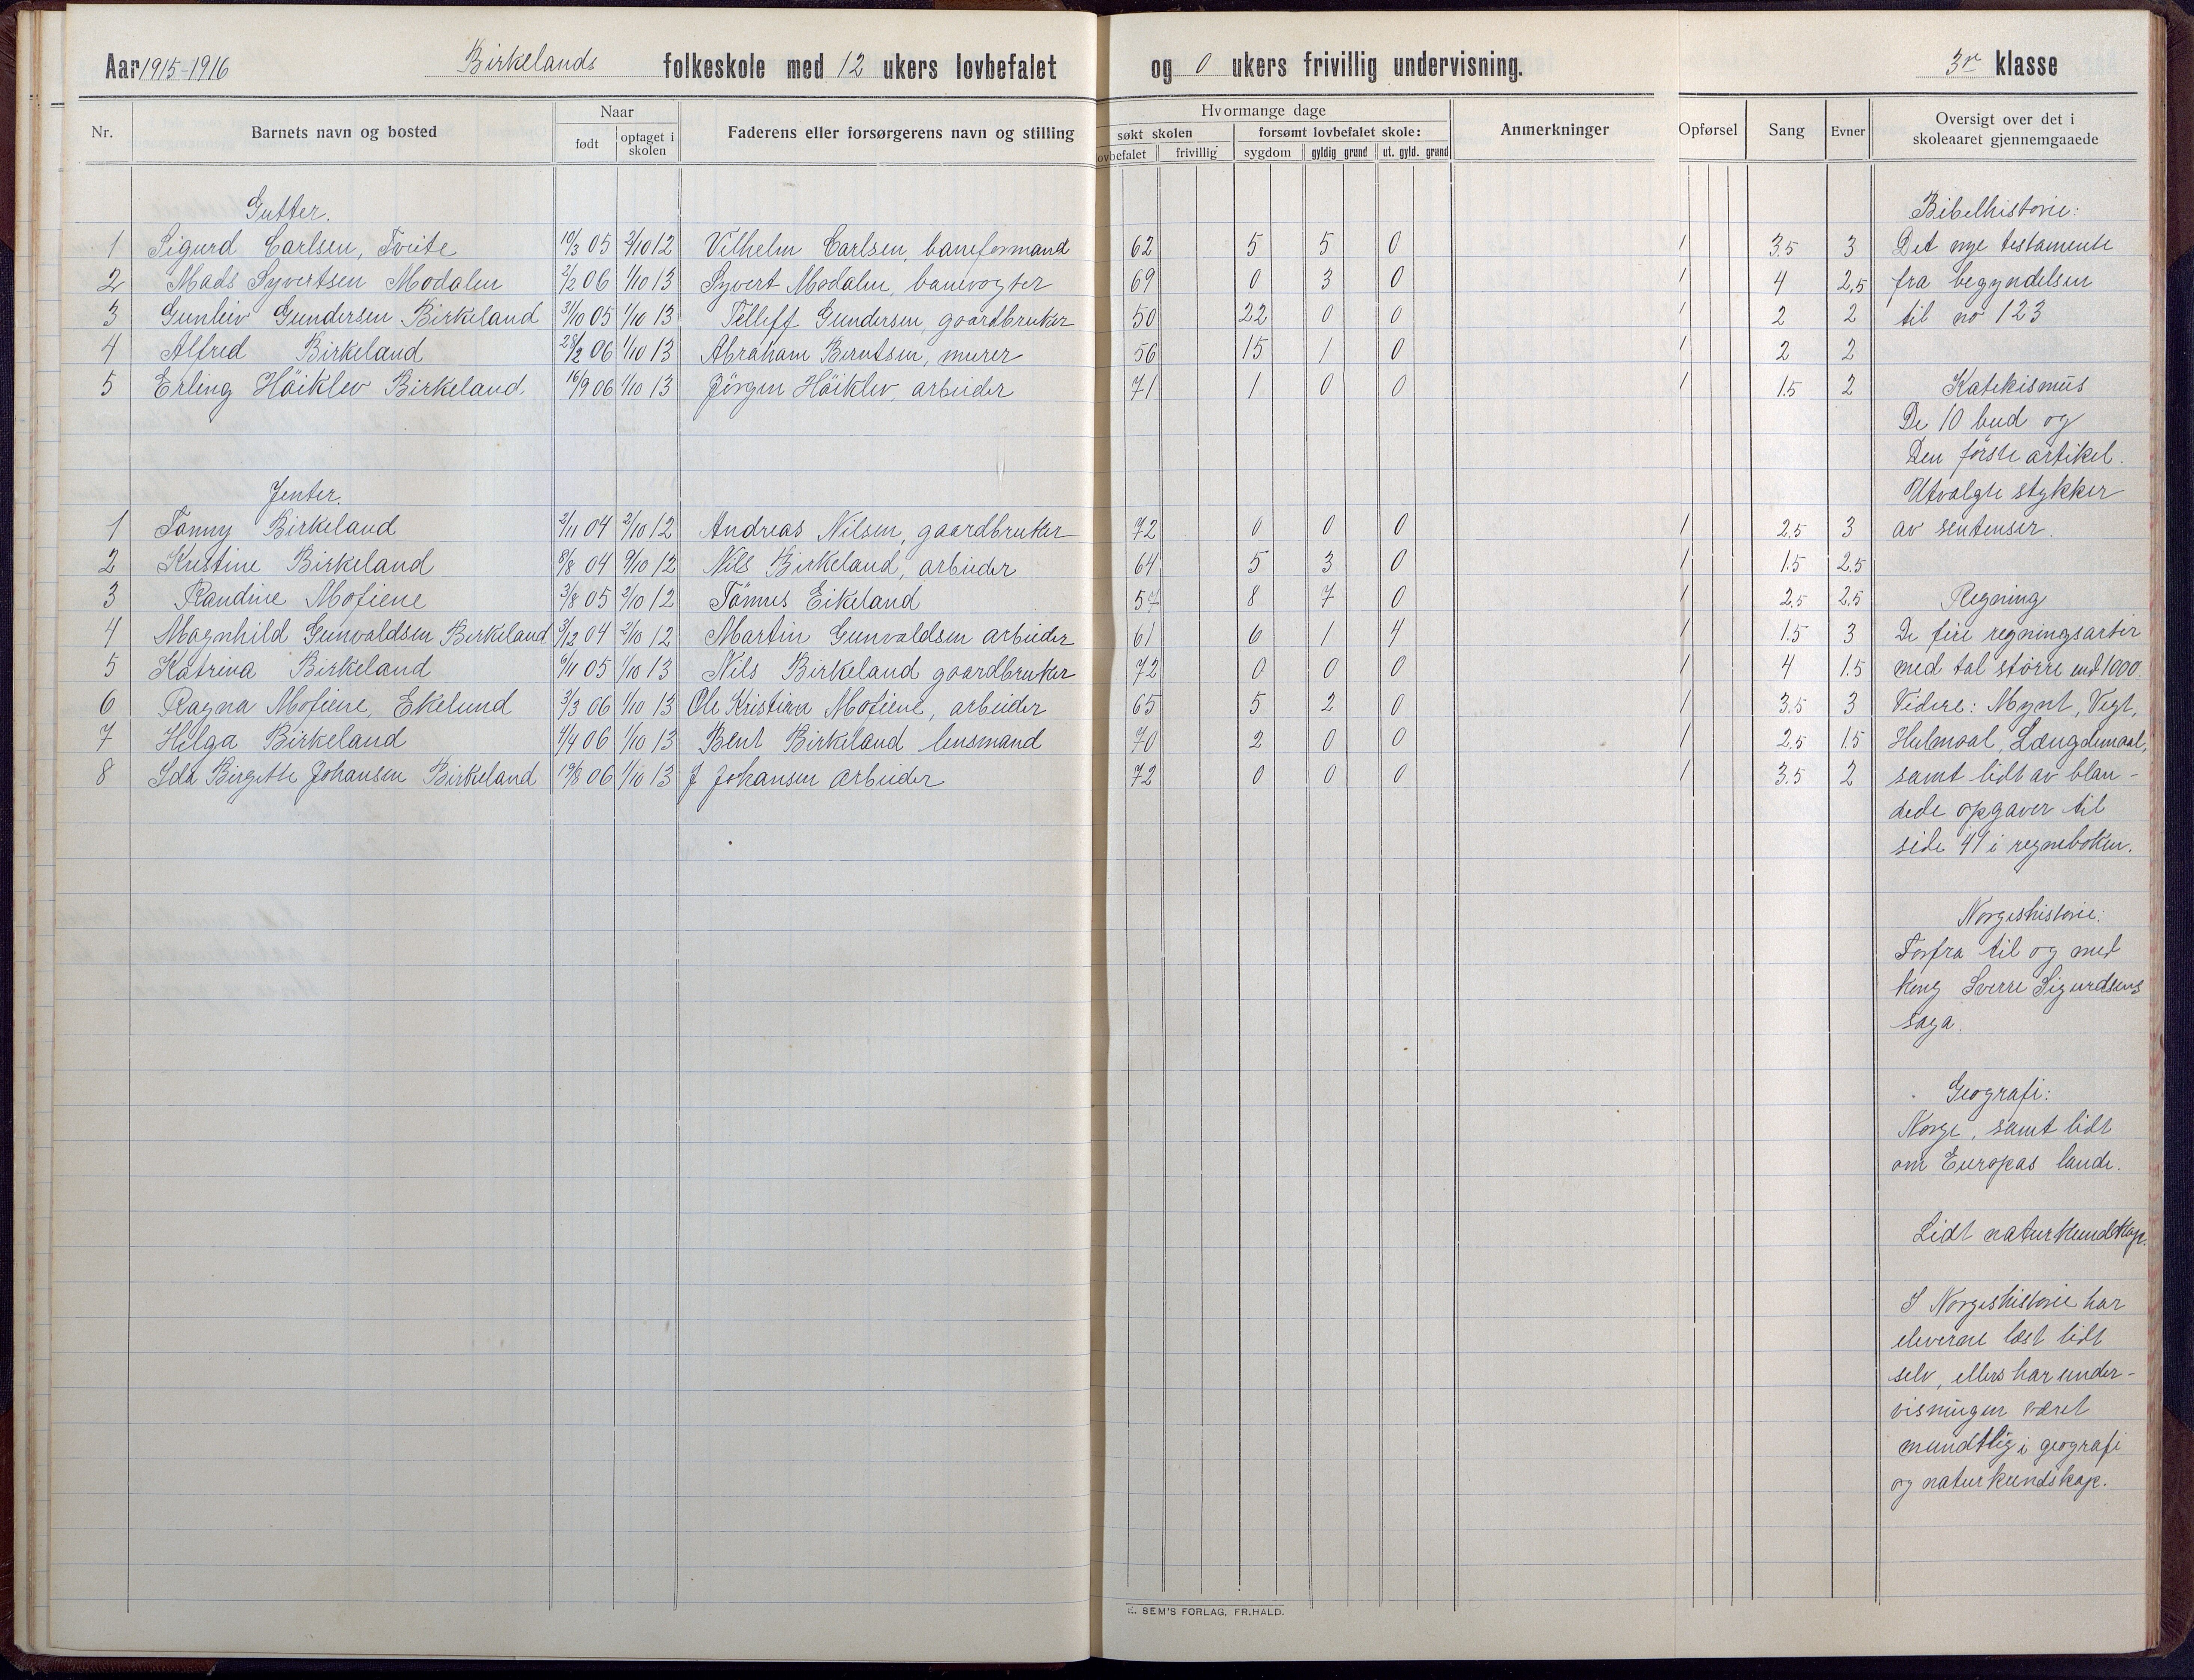 Aar 1915-1916 Birkelands folkeskole med 12 ukers lovbefalet og 0 ukers frivillig undervisning. 3r klasse
Nr. Barnets navn og bosted Naar født optaget i skolen Faderens eller forsørgerens navn og stilling Hvormange dage søkt skolen lovbefalet frivillig forsømt lovbefalet skole: sygdom gyldig grund ut. gyld. grund Anmerkninger Opførsel Sang Evner Oversigt over det i skoleaaret gjennemgaaede
Gutter. Bibelhistorie:
1 Sigurd Carlsen, Tveite 10/3 05 2/10 12 Vilhelm Carlsen, baneformand 62 5 5 0 1 3.5 3 Det nye testamente
2 Mads Syvertsen Modalen 2/2 06 1/10 13 Syvert Modalen, banevogter 69 0 3 0 1 4 2.5 fra begyndelsen
3 Gunleiv Gundersen Birkeland 31/10 05 1/10 13 Telleff Gundersen, gaardbruker 50 22 0 0 1 2 2 til no 123
4 Alfred Birkeland 28/2 06 1/10 13 Abraham Berntsen, murer 56 15 1 0 1 2 2
5 Erling Höiklev Birkeland. 16/9 06 1/10 13 Jörgen Höiklev, arbeider 71 1 0 0 1 1.5 2 Katekismus
De 10 bud og
Den förste artikel.
Jenter. Utvalgte stykker
1 Tanny Birkeland 2/11 04 2/10 12 Andreas Nilsen, gaardbruker 72 0 0 0 1 2.5 3 av sentenser.
2 Kristine Birkeland 8/8 04 9/10 12 Nils Birkeland, arbeider 64 5 3 0 1 1.5 2.5
3 Randine Mofiene 3/8 05 2/10 12 Tömus Eikeland 57 8 7 0 1 2.5 2.5 Regning
4 Magnhild Gunvaldsen Birkeland 3/12 04 2/10 12 Martin Gunvaldsen arbeider 61 6 1 4 1 1.5 3 De fire regningsarter
5 Katrina Birkeland 6/11 05 1/10 13 Nils Birkeland gaardbruker 72 0 0 0 1 4 1.5 med tal större end 1000.
6 Ragna Mofiene, Ekelund 3/3 06 1/10 13 Ole Kristian Mofiene, arbeider 65 5 2 0 1 3.5 3 Videre: Mynt, Vegt,
7 Helga Birkeland 1/4 06 1/10 13 Bent Birkeland lensmand 70 2 0 0 1 2.5 1.5 Hulmaal, Længdemaal,
8 Ida Birgitte Johansen Birkeland 19/8 06 1/10 13 J Johansen arbeider 72 0 0 0 1 3.5 2 samt lidt av blan-
dede opgaver til
side 41 i regneboken.
Norgeshistorie:
Forfra til og med
kong Sverre Sigurdsens
saga.
Geografi:
Norge, samt lidt
om Europas lande.
Lidt naturkundskap.
I Norgeshistorie har
eleverne læst lidt
selv, ellers har under-
visningen været
mundtlig i geografi
og naturkundskap.
E. SEM'S FORLAG, FR.HALD.